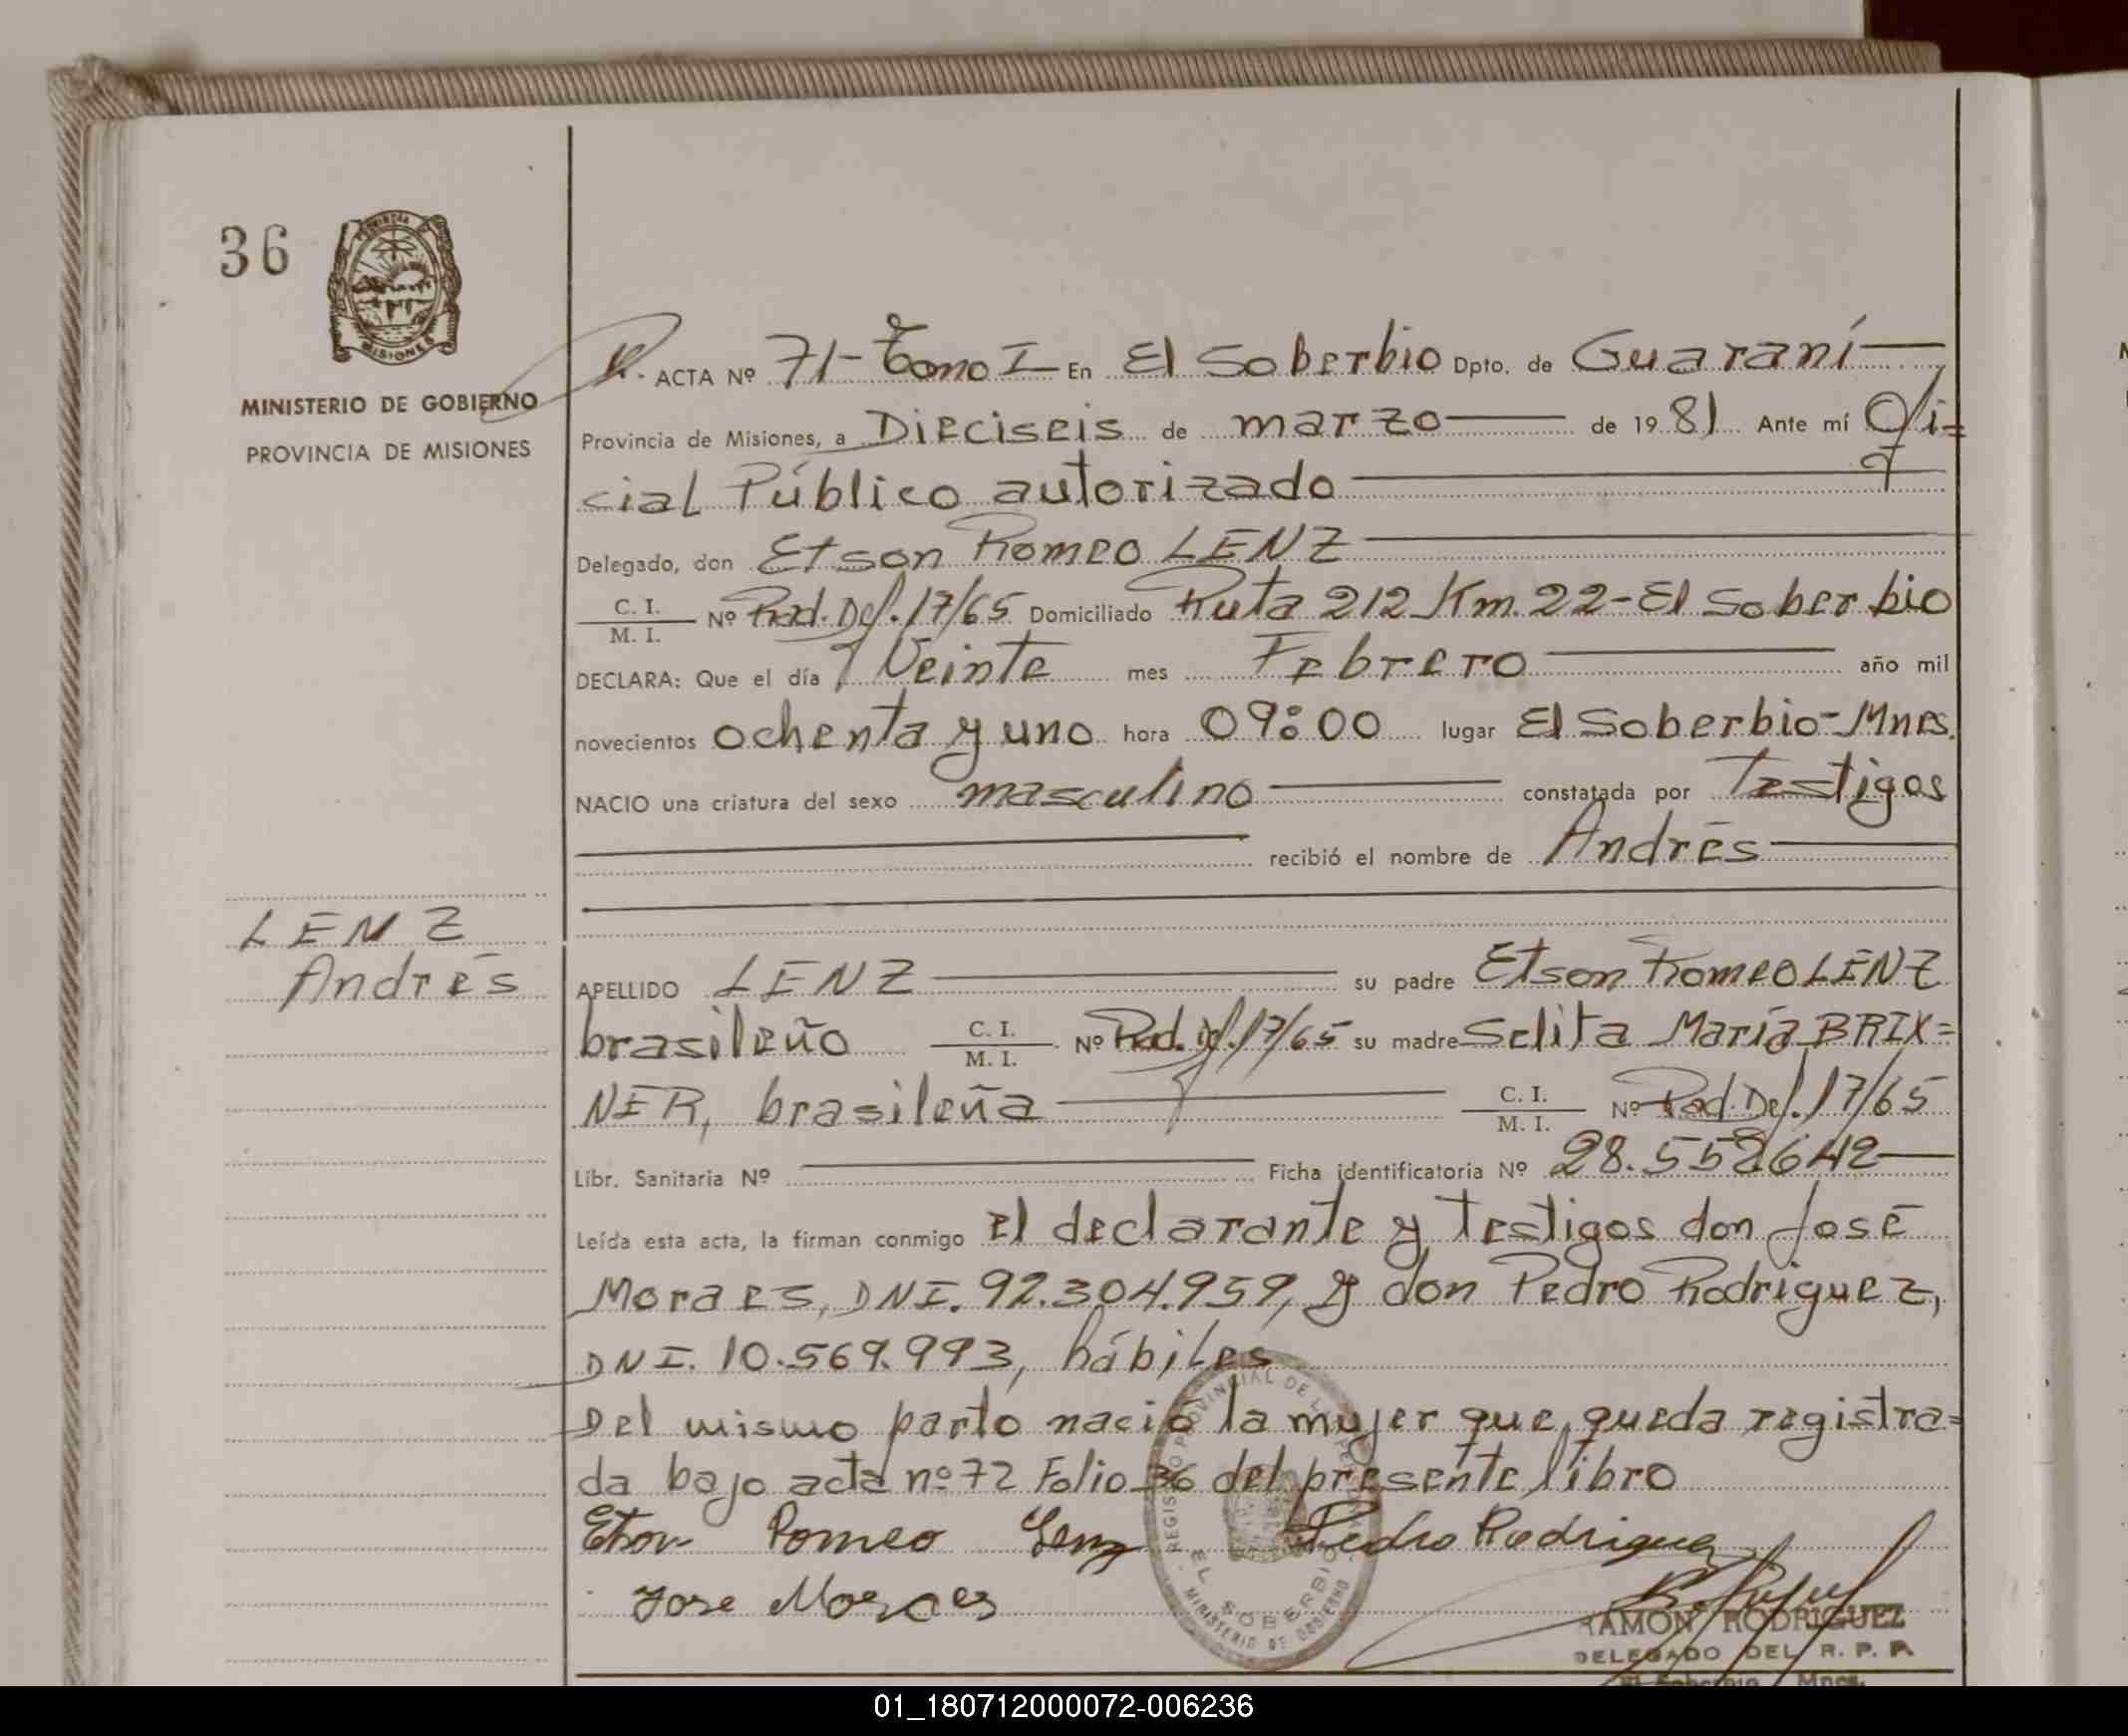 36
MISIONES
MINISTERIO DE GOBIERNO
PROVINCIA DE MISIONES
ACTA Nº 71- Tomo I En El Soberbio Dpto. de Guaraní
Provincia de Misiones, a Dieciseis de marzo de 1981 Ante mí Ofi=
cial Público autorizado
Delegado, don Etson Romeo LENZ
C. I. / M. I. Nº Rad. Def. 17/65 Domiciliado Ruta 212 Km. 22-El Soberbio
DECLARA: Que el día Veinte mes Febrero año mil
novecientos ochenta y uno hora 09:00 lugar El Soberbio-Mnes.
NACIO una criatura del sexo masculino constatada por Testigos
recibió el nombre de Andrés
LENZ
Andrés
APELLIDO LENZ su padre Etson Romeo LENZ
brasileño C. I. / M. I. Nº Rad. Def. 17/65 su madre Selita María BRIX=
NER, brasileña C. I. / M. I. Nº Rad. Def. 17/65
Libr. Sanitaria Nº Ficha identificatoria Nº 28.558642
Leída esta acta, la firman conmigo el declarante y testigos don José
Moraes, DNI. 92.304.959, y don Pedro Rodriguez,
DNI. 10.569.993, hábiles
Del mismo parto nació la mujer que queda registra=
da bajo acta nº 72 Folio 36 del presente libro
Etson Romeo Lenz Pedro Rodriguez
Jose Moraes
REGISTRO PROVINCIAL DE LAS PERSONAS
EL SOBERBIO
MINISTERIO DE GOBIERNO
RAMON RODRIGUEZ
DELEGADO DEL R. P. P.
El Soberbio Mnes.
01_180712000072-006236